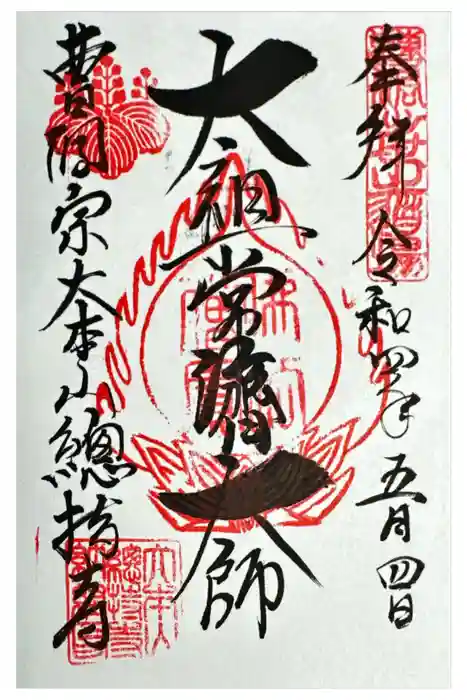 奉拝 令和四年五月四日
太祖常済大師
曹洞宗大本山總持寺